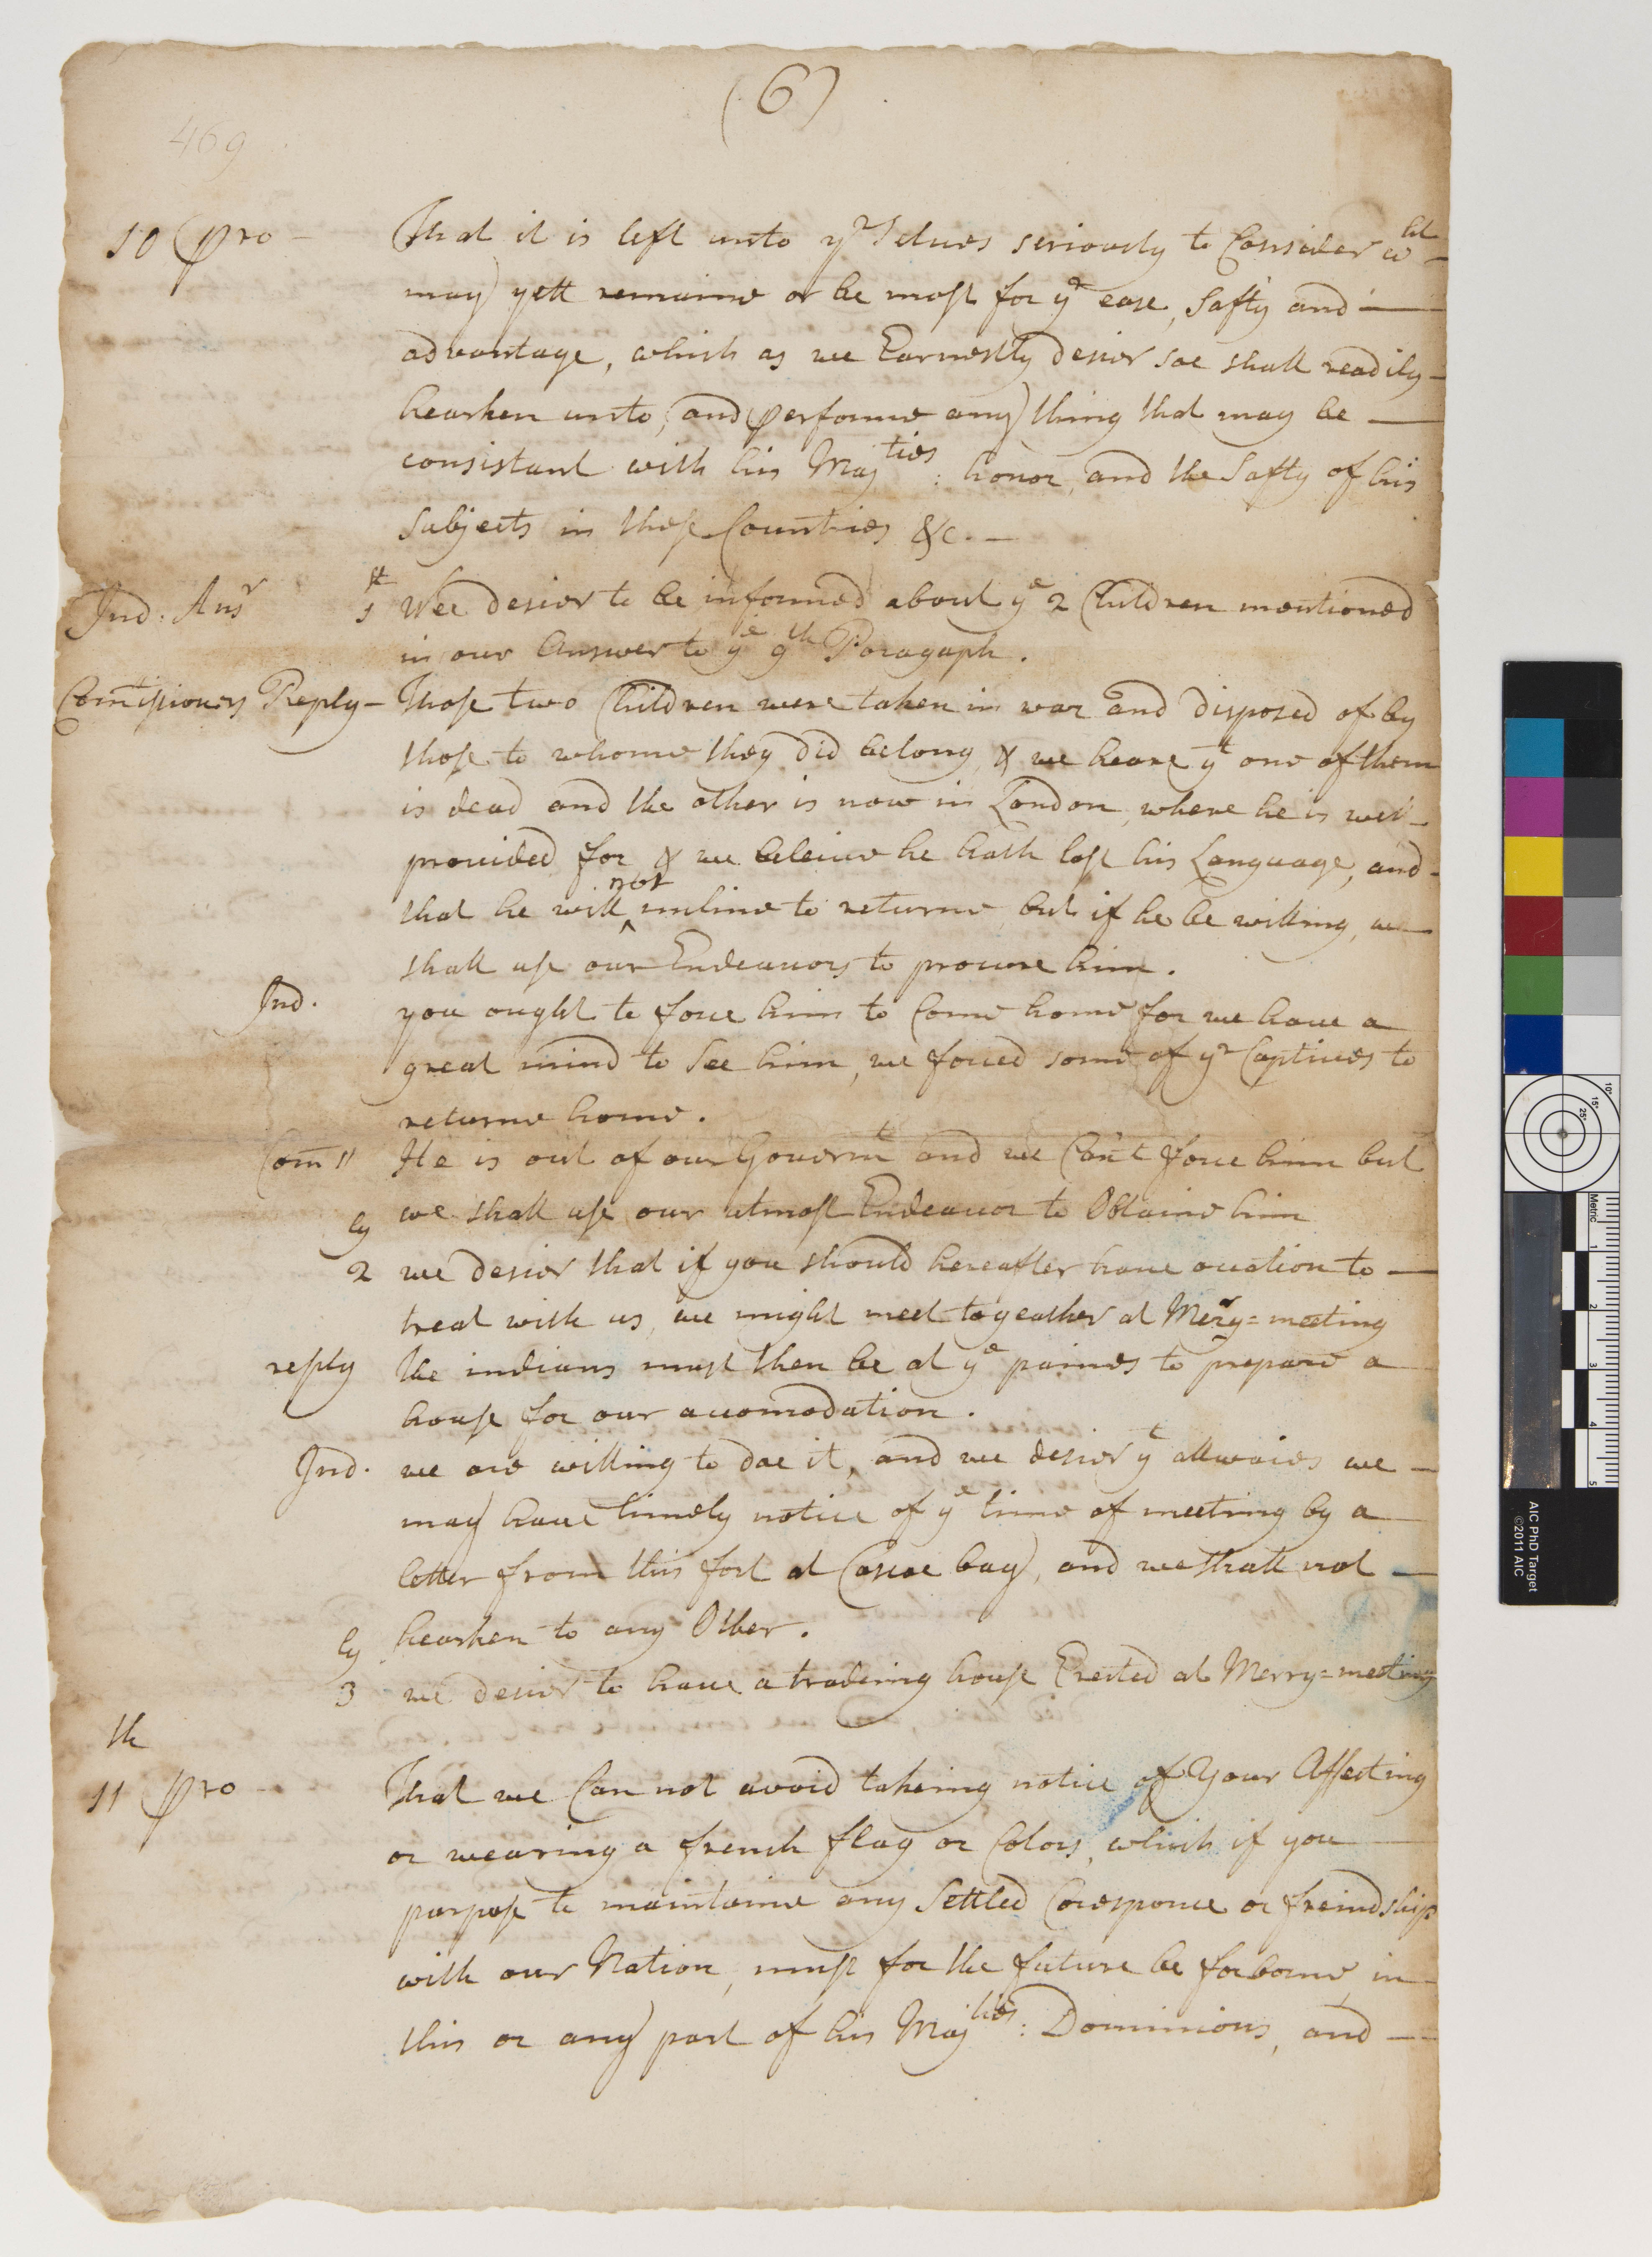 (6)
469
10 pro — That it is left unto yr Selves seriously to Consider wht —
may yett remaine or be most for yr ease, Safty and —
advantage, which as we Earnestly desier soe shall readily —
hearken unto, and performe any thing that may be —
consistant with his Majties: honor, and the Safty of his
Subjects in those Countries &c. —
Ind: Ansr 1st Wee desier to be informed about ye 2 Children mentioned
in our Answer to ye 9th Paragaph.
Comissioners Reply — Those two Children were taken in war and disposed of by
those to whome they did belong, & we heare yt one of them
is dead and the other is now in London, where he is well
provided for & we beleive he hath lost his Language, and —
that he will ^not incline to returne, but if he be willing, we
shall use our Endeavors to procure him.
Ind. you ought to force him to Come home for we have a
great mind to See him, we forced some of yr Captives to
returne home.
Comrs He is out of our Governt and we Can't force him but
we shall use our utmost Endeavor to Obtaine him
2ly we desier that if you should hereafter have occation to —
treat with us, we might meet togeather at Merry=meeting
reply the indians must then be at ye paines to prepare a
house for our accomodation.
Ind. we are willing to doe it, and we desier yt allwaies we —
may have timely notice of ye time of meeting by a
letter from this fort at Cascoe bay, and we shall not —
hearken to any Other.
3ly we desier to have a tradeing house Erected at Merry=meeting
11th pro — That we Can not avoid takeing notice of Your Affecting
or wearing a french flag or Colors, which if you
purpose to maintaine any Settled Coresponce or freindship
with our Nation, must for the future be forborne, in
this or any part of his Majties: Dominions, and —
Metric
1
2
3
4
5
10°
15°
25°
AIC PhD Target
©2011 AIC